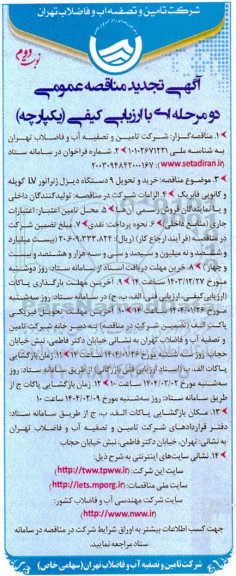 شرکت تامین و تصفیه آب و فاضلاب تهران
نوبت دوم
آگهی تجدید مناقصه عمومی
دو مرحله ای با ارزیابی کیفی (یکپارچه)
۱. مناقصه‌گزار: شرکت تامین و تصفیه آب و فاضلاب تهران
به شناسه ملی ۱۰۱۰۲۶۷۱۲۳۱ ۲. شماره فراخوان در سامانه ستاد
(www.setadiran.ir): ۲۰۰۳۰۹۴۸۲۲۰۰۰۱۶۷
۳. موضوع مناقصه: خرید و تحویل ۹ دستگاه دیزل ژنراتور LV کوپله
و کانوپی فابریک ۴. الزامات شرکت در مناقصه: تولیدکنندگان داخلی
و یا نمایندگان فروش رسمی آن‌ها ۵. محل تامین اعتبار: اعتبارات
جاری (منابع داخلی) ۶. نحوه پرداخت: نقدی ۷. مبلغ تضمین شرکت
در مناقصه (فرآیند ارجاع کار) (ریال): ۲۰,۶۰۹,۲۳۳,۸۲۴ (بیست میلیارد
و ششصد و نه میلیون و دویست و سی و سه هزار و هشتصد و بیست
و چهار) ۸. آخرین مهلت دریافت اسناد از سامانه ستاد: روز دوشنبه
مورخ ۱۴۰۳/۱۲/۲۷ ساعت ۱۴ ۹. آخرین مهلت بارگذاری پاکات
(ارزیابی کیفی، ارزیابی فنی، الف، ب، ج) در سامانه ستاد: روز سه‌شنبه
مورخ ۱۴۰۴/۰۱/۲۶ ساعت ۱۴ ۱۰. آخرین مهلت تحویل فیزیکی
پاکت الف (تضمین شرکت در مناقصه) به دبیرخانه شرکت تامین
و تصفیه آب و فاضلاب تهران به نشانی تهران، خیابان دکتر فاطمی، نبش خیابان
حجاب: روز سه‌شنبه مورخ ۱۴۰۴/۰۱/۲۶ ساعت ۱۴ ۱۱. زمان بازگشایی
پاکات الف، ب (اسناد ارزیابی فنی بازرگانی) از طریق سامانه ستاد: روز
سه‌شنبه مورخ ۱۴۰۴/۰۲/۰۲ ساعت ۱۰ ۱۲. زمان بازگشایی پاکات ج از
طریق سامانه ستاد: روز سه‌شنبه مورخ ۱۴۰۴/۰۲/۰۹ ساعت ۱۰
۱۳. مکان بازگشایی پاکات الف، ب، ج از طریق سامانه ستاد:
دفتر قراردادهای شرکت تامین و تصفیه آب و فاضلاب تهران
به نشانی: تهران، خیابان دکتر فاطمی، نبش خیابان حجاب
۱۴. نشانی سایت‌های اینترنتی به شرح ذیل:
سایت این شرکت: (http://tww.tpww.ir)
سایت ملی مناقصات: (http://iets.mporg.ir)
سایت شرکت مهندسی آب و فاضلاب کشور:
(http://www.nww.ir)
جهت کسب اطلاعات بیشتر به اوراق شرایط شرکت در مناقصه در سامانه
ستاد مراجعه نمایید.
شرکت تامین و تصفیه آب و فاضلاب تهران (سهامی خاص)